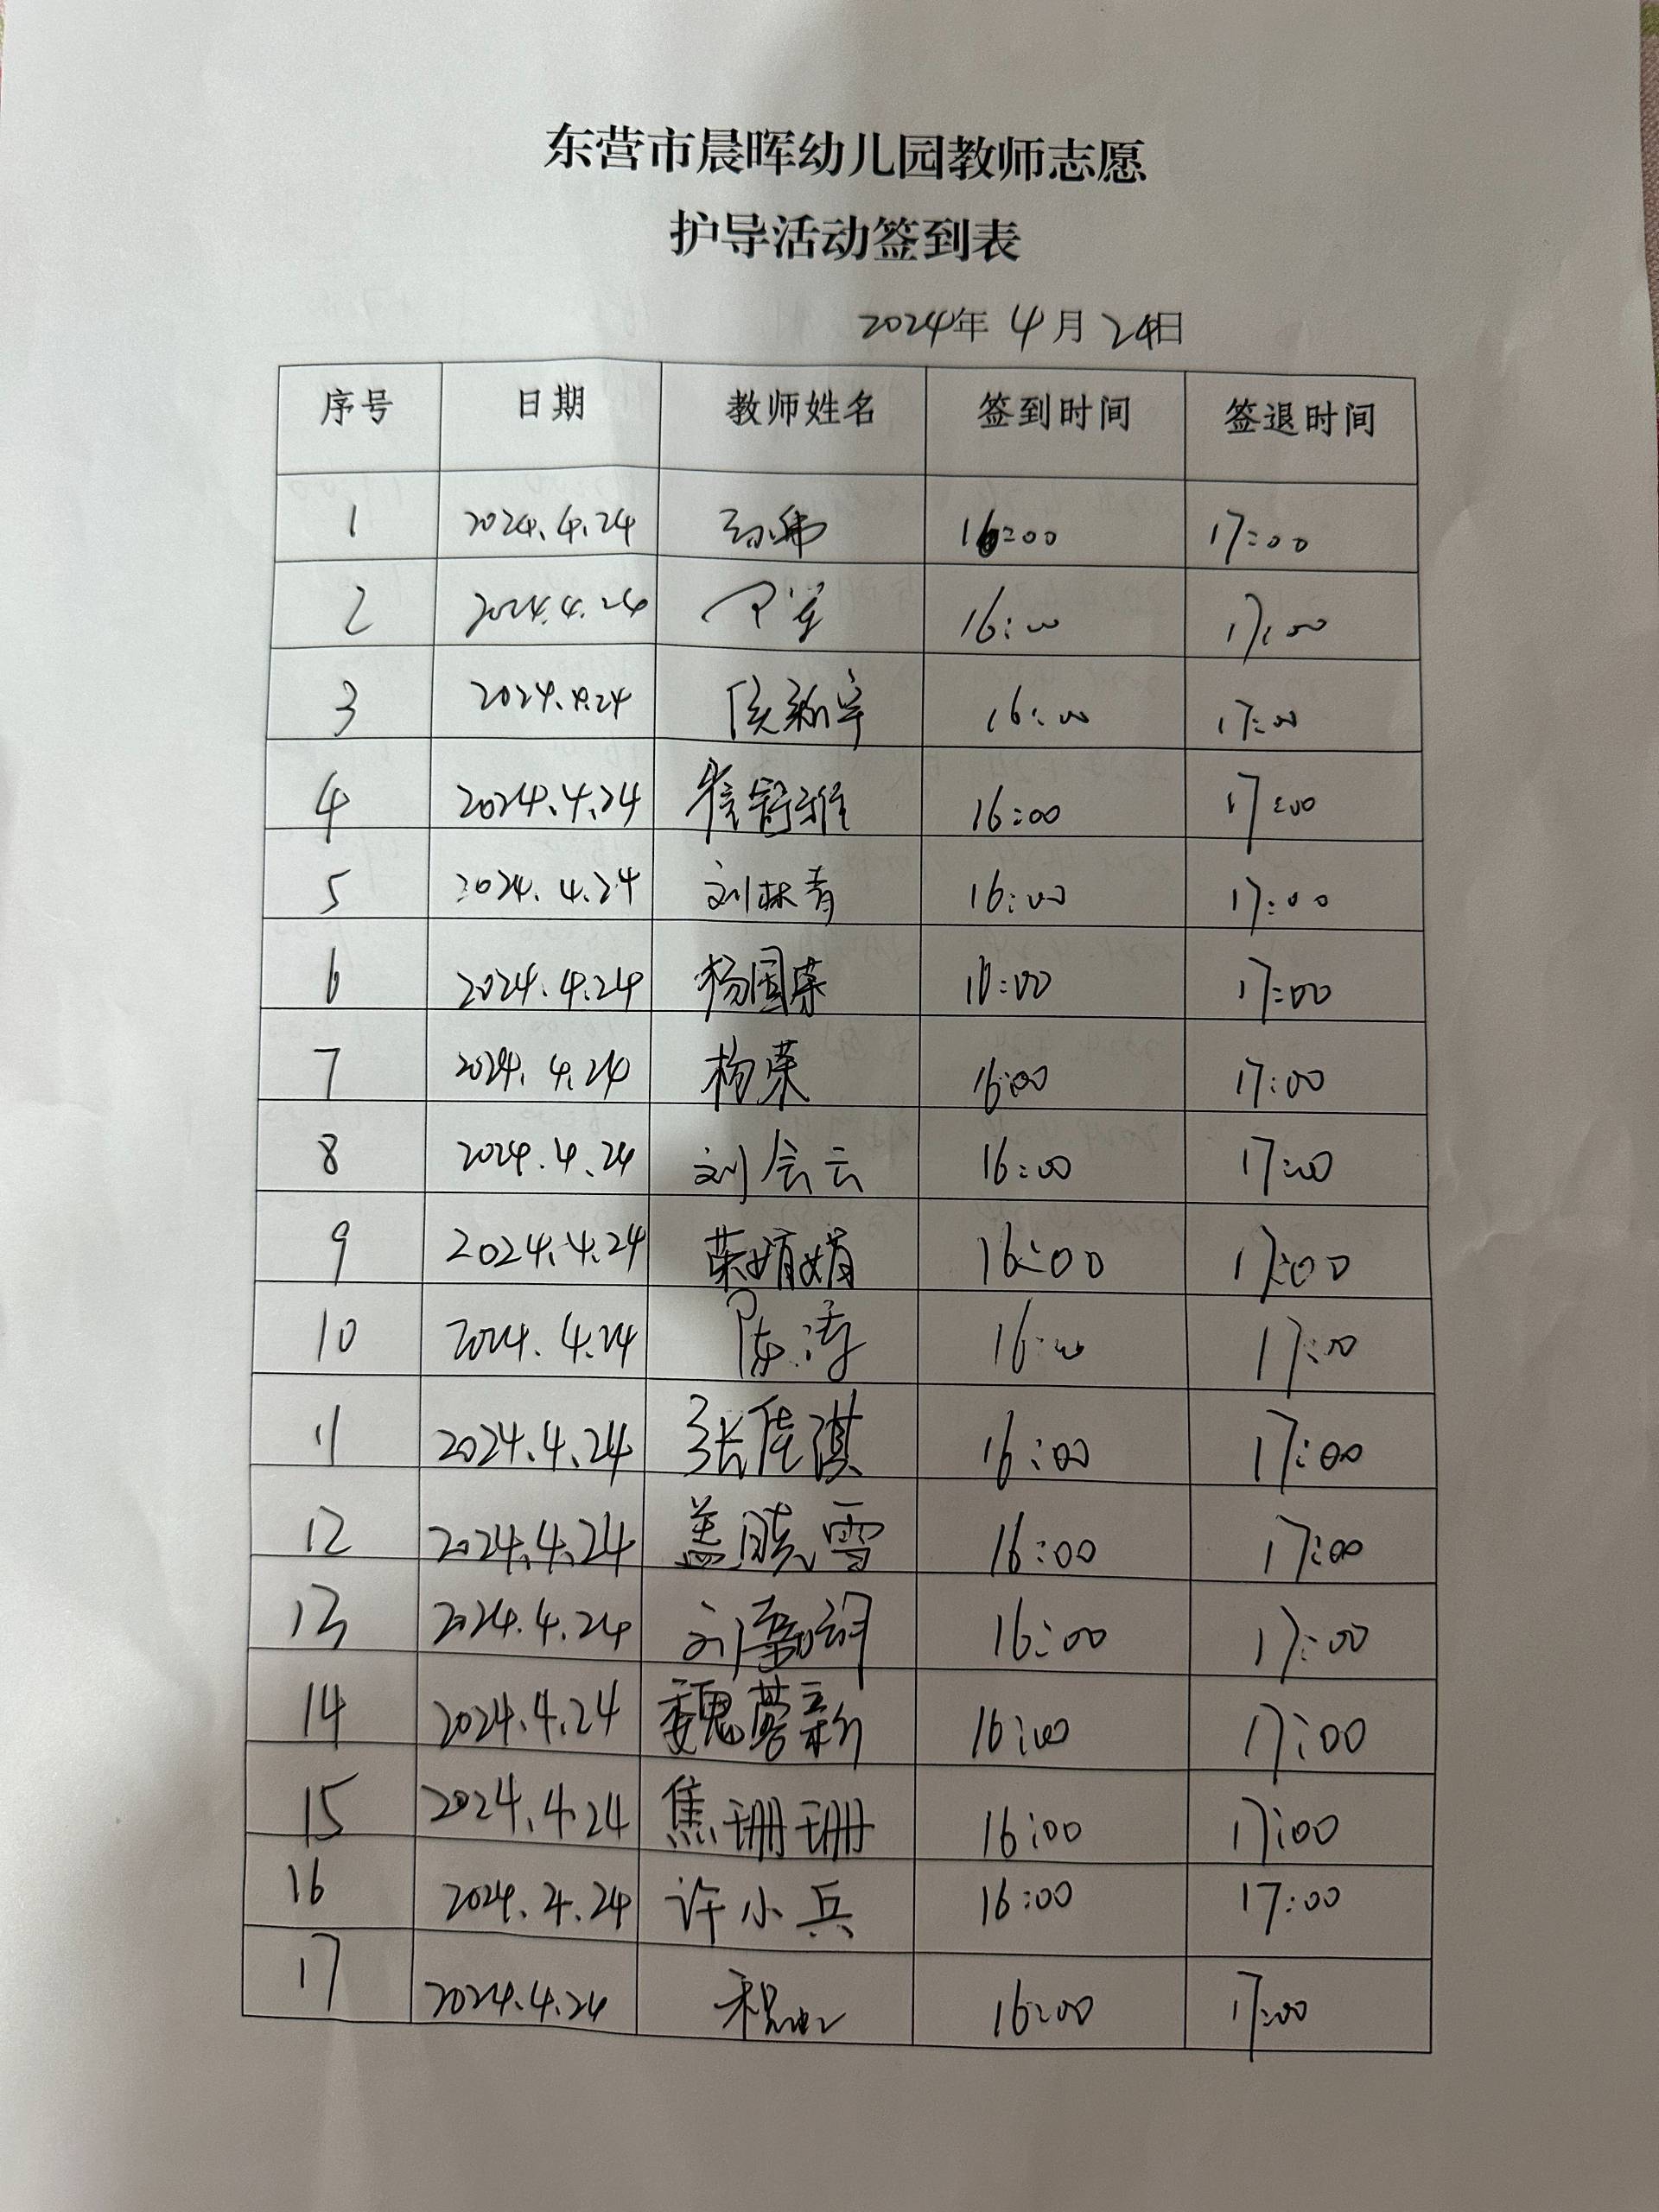 东营市晨晖幼儿园教师志愿
护导活动签到表
2024年 4月 24日
序号 日期 教师姓名 签到时间 签退时间
1 2024.4.24 16:00 17:00
2 2024.4.24 16:00 17:00
3 2024.4.24 侯新宇 16:00 17:00
4 2024.4.24 崔舒雅 16:00 17:00
5 2024.4.24 刘林青 16:00 17:00
6 2024.4.24 杨国荣 16:00 17:00
7 2024.4.24 杨荣 16:00 17:00
8 2024.4.24 刘会云 16:00 17:00
9 2024.4.24 荣娟娟 16:00 17:00
10 2024.4.24 陈涛 16:00 17:00
11 2024.4.24 张佳淇 16:00 17:00
12 2024.4.24 盖晓雪 16:00 17:00
13 2024.4.24 16:00 17:00
14 2024.4.24 魏梦新 16:00 17:00
15 2024.4.24 焦珊珊 16:00 17:00
16 2024.4.24 许小兵 16:00 17:00
17 2024.4.24 16:00 17:00